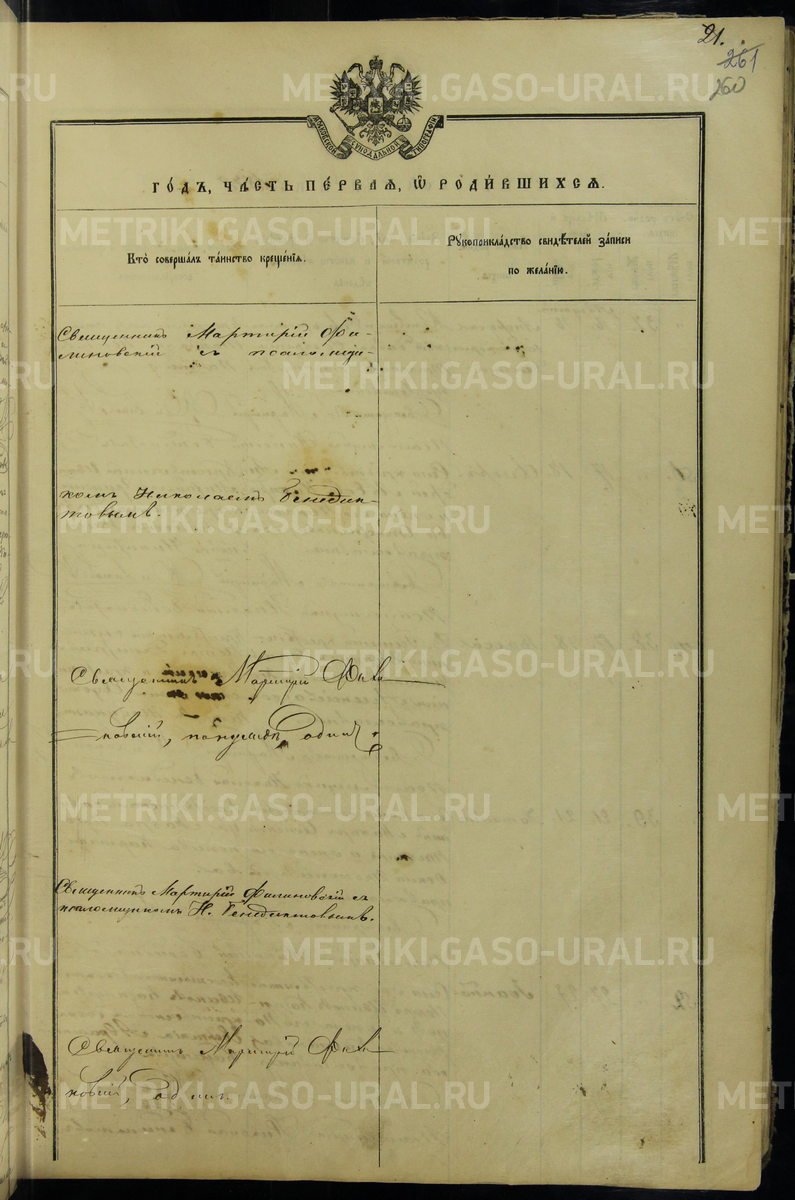 21.
261
260
МОСКОВСКОЙ СѴНОДАЛЬНОЙ ТИПОГРАФІИ
ГО́ДЪ, ЧА́СТЬ ПЕ́РВАѦ, Ѽ РОДИ́ВШИХСѦ.
Кто̀ соверша́лъ та́инство креще́нїѧ.
Рꙋкоприкла́дство свидѣ́телей за́писи
по жела́нїю.
Священникъ Мартирій Фи-
линовскій съ псаломщи-
комъ Николаемъ Бенедик-
товымъ.
Священникъ Мартирій Фили
новскій, одинъ
Священникъ Мартирій Филиновскій съ
псаломщикомъ Н. Бенедиктовымъ.
Священникъ Мартирій Фили
новскій, одинъ.
METRIKI.GASO-URAL.RU